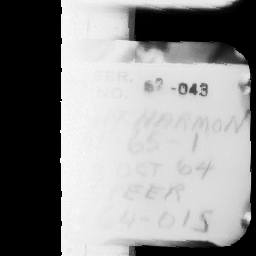 NO. 62-043
HARMON
65-1
OCT 64
PEER
64-015